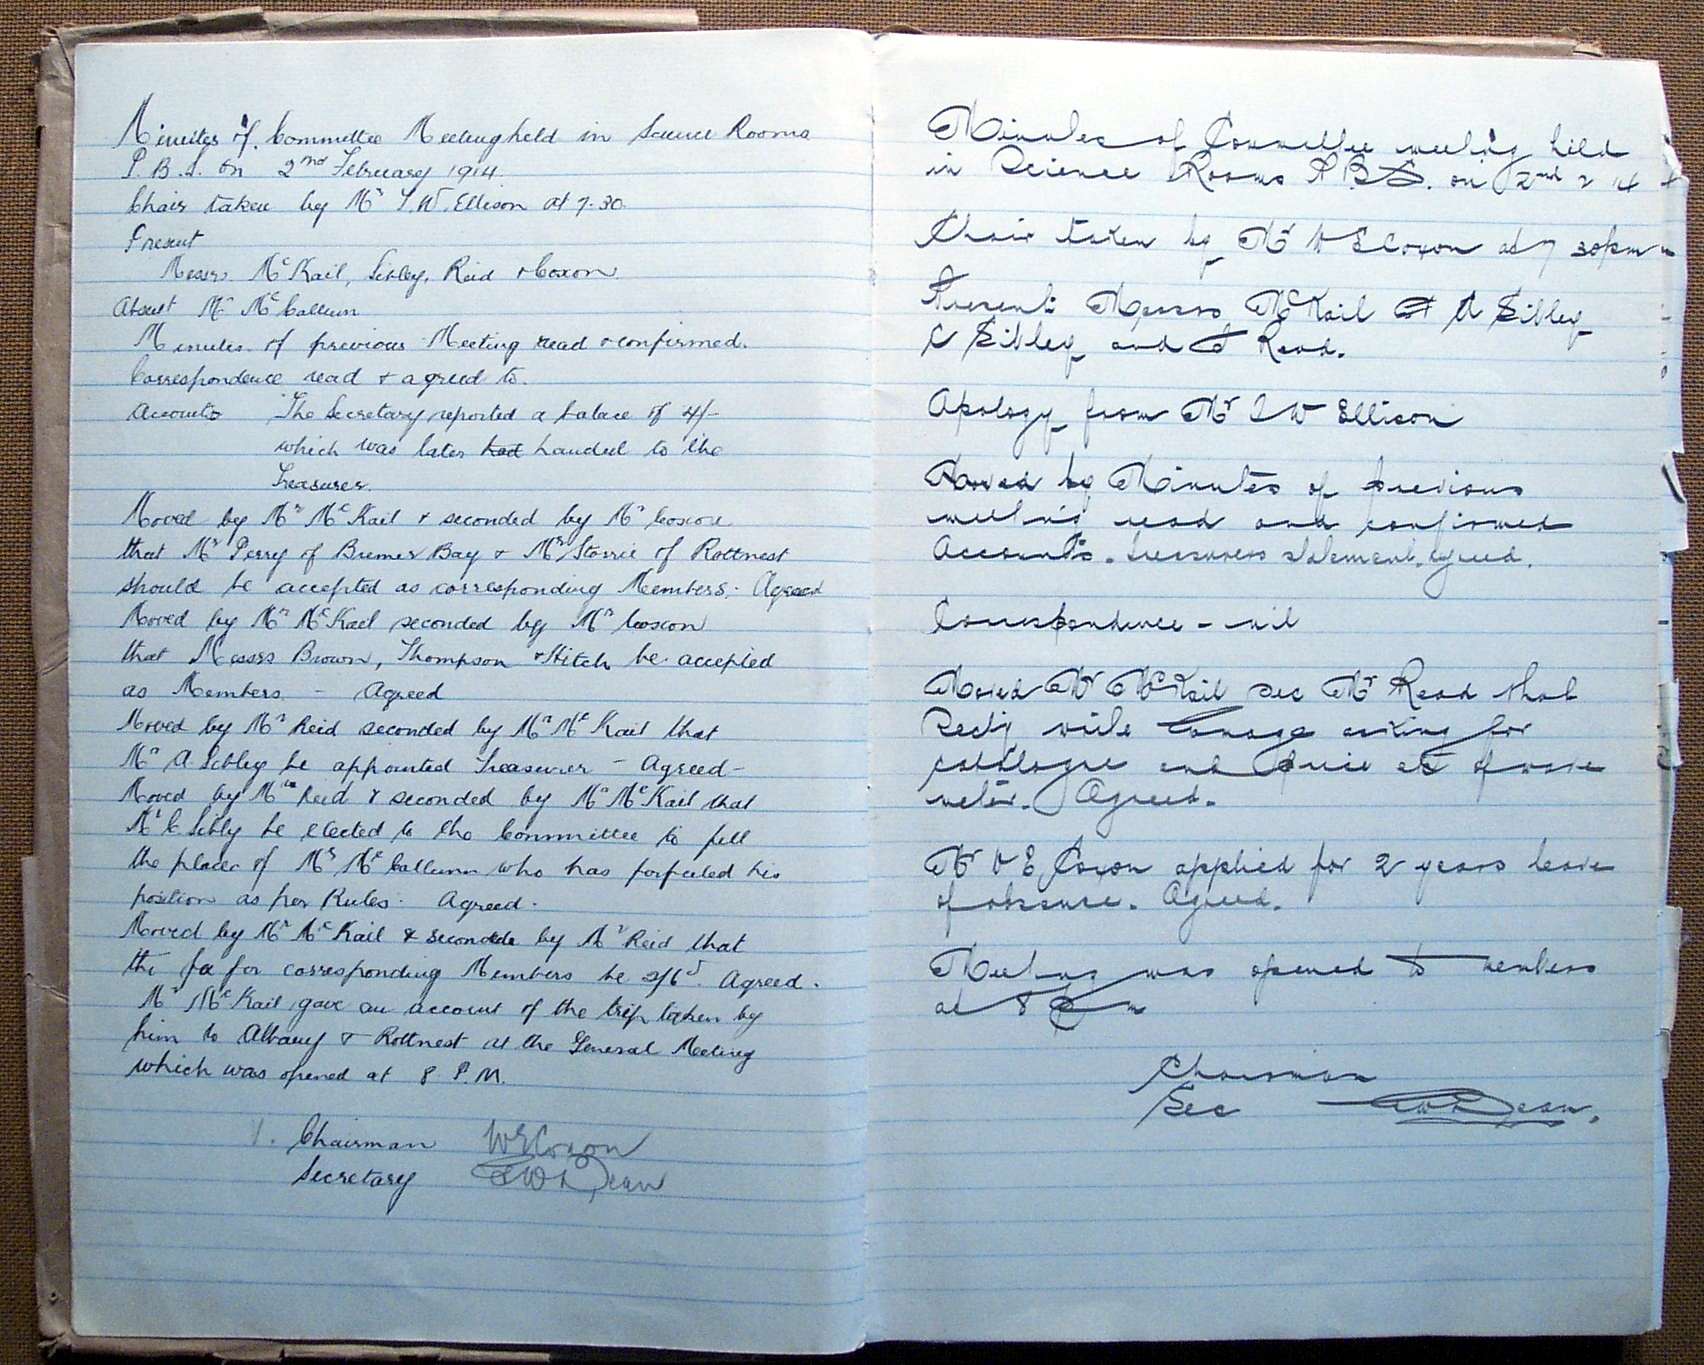 Minutes of Committee Meeting held in Science Rooms
P. B. S. on 2nd February 1914
Chair taken by Mr I. W. Ellison at 7.30.
Present
Messrs. McKail, Sibley, Reid & Coxon
Absent Mr McCallum
Minutes of previous Meeting read & confirmed.
Correspondence read & agreed to.
Accounts The Secretary reported a balace of 4/-
which was later had handed to the
Treasurer.
Moved by Mr McKail & seconded by Mr Coxon
that Mr Perry of Bremer Bay & Mr Storrie of Rottnest
should be accepted as corresponding Members. Agreed
Moved by Mr McKail seconded by Mr Coxon
that Messrs Brown, Thompson & Hitch be accepted
as Members - Agreed
Moved by Mr Reid seconded by Mr McKail that
Mr A Sibley be appointed Treasurer - Agreed -
Moved by Mr Reid & seconded by Mr McKail that
Mr C Sibly be elected to the Committee to fill
the place of Mr McCallum who has forfeited his
position as per Rules. Agreed.
Moved by Mr McKail & seconded by Mr Reid that
the fee for corresponding Members be 2/6d. Agreed.
Mr McKail gave an account of the trip taken by
him to Albany & Rottnest at the General Meeting
which was opened at 8 P.M.
Chairman WECoxon
Secretary Dean
Minutes of Committee meeting held
in Science Rooms P B S. on 2nd 2 14
Chair taken by Mr W E Coxon at 7 30pm
Present: Messrs McKail A Sibley
C Sibley and Read.
Apology from Mr I W Ellison
Moved by Minutes of previous
meeting read and confirmed
Accounts. Treasurers statement. Agreed.
Correspondence - nil
Moved Mr McKail sec Mr Read that
Secty write asking for
catalogue and price etc of wave
meter. Agreed.
Mr W E Coxon applied for 2 years leave
of absence. Agreed.
Meeting was opened to members
at 8 pm
Chairman
Sec Dean.